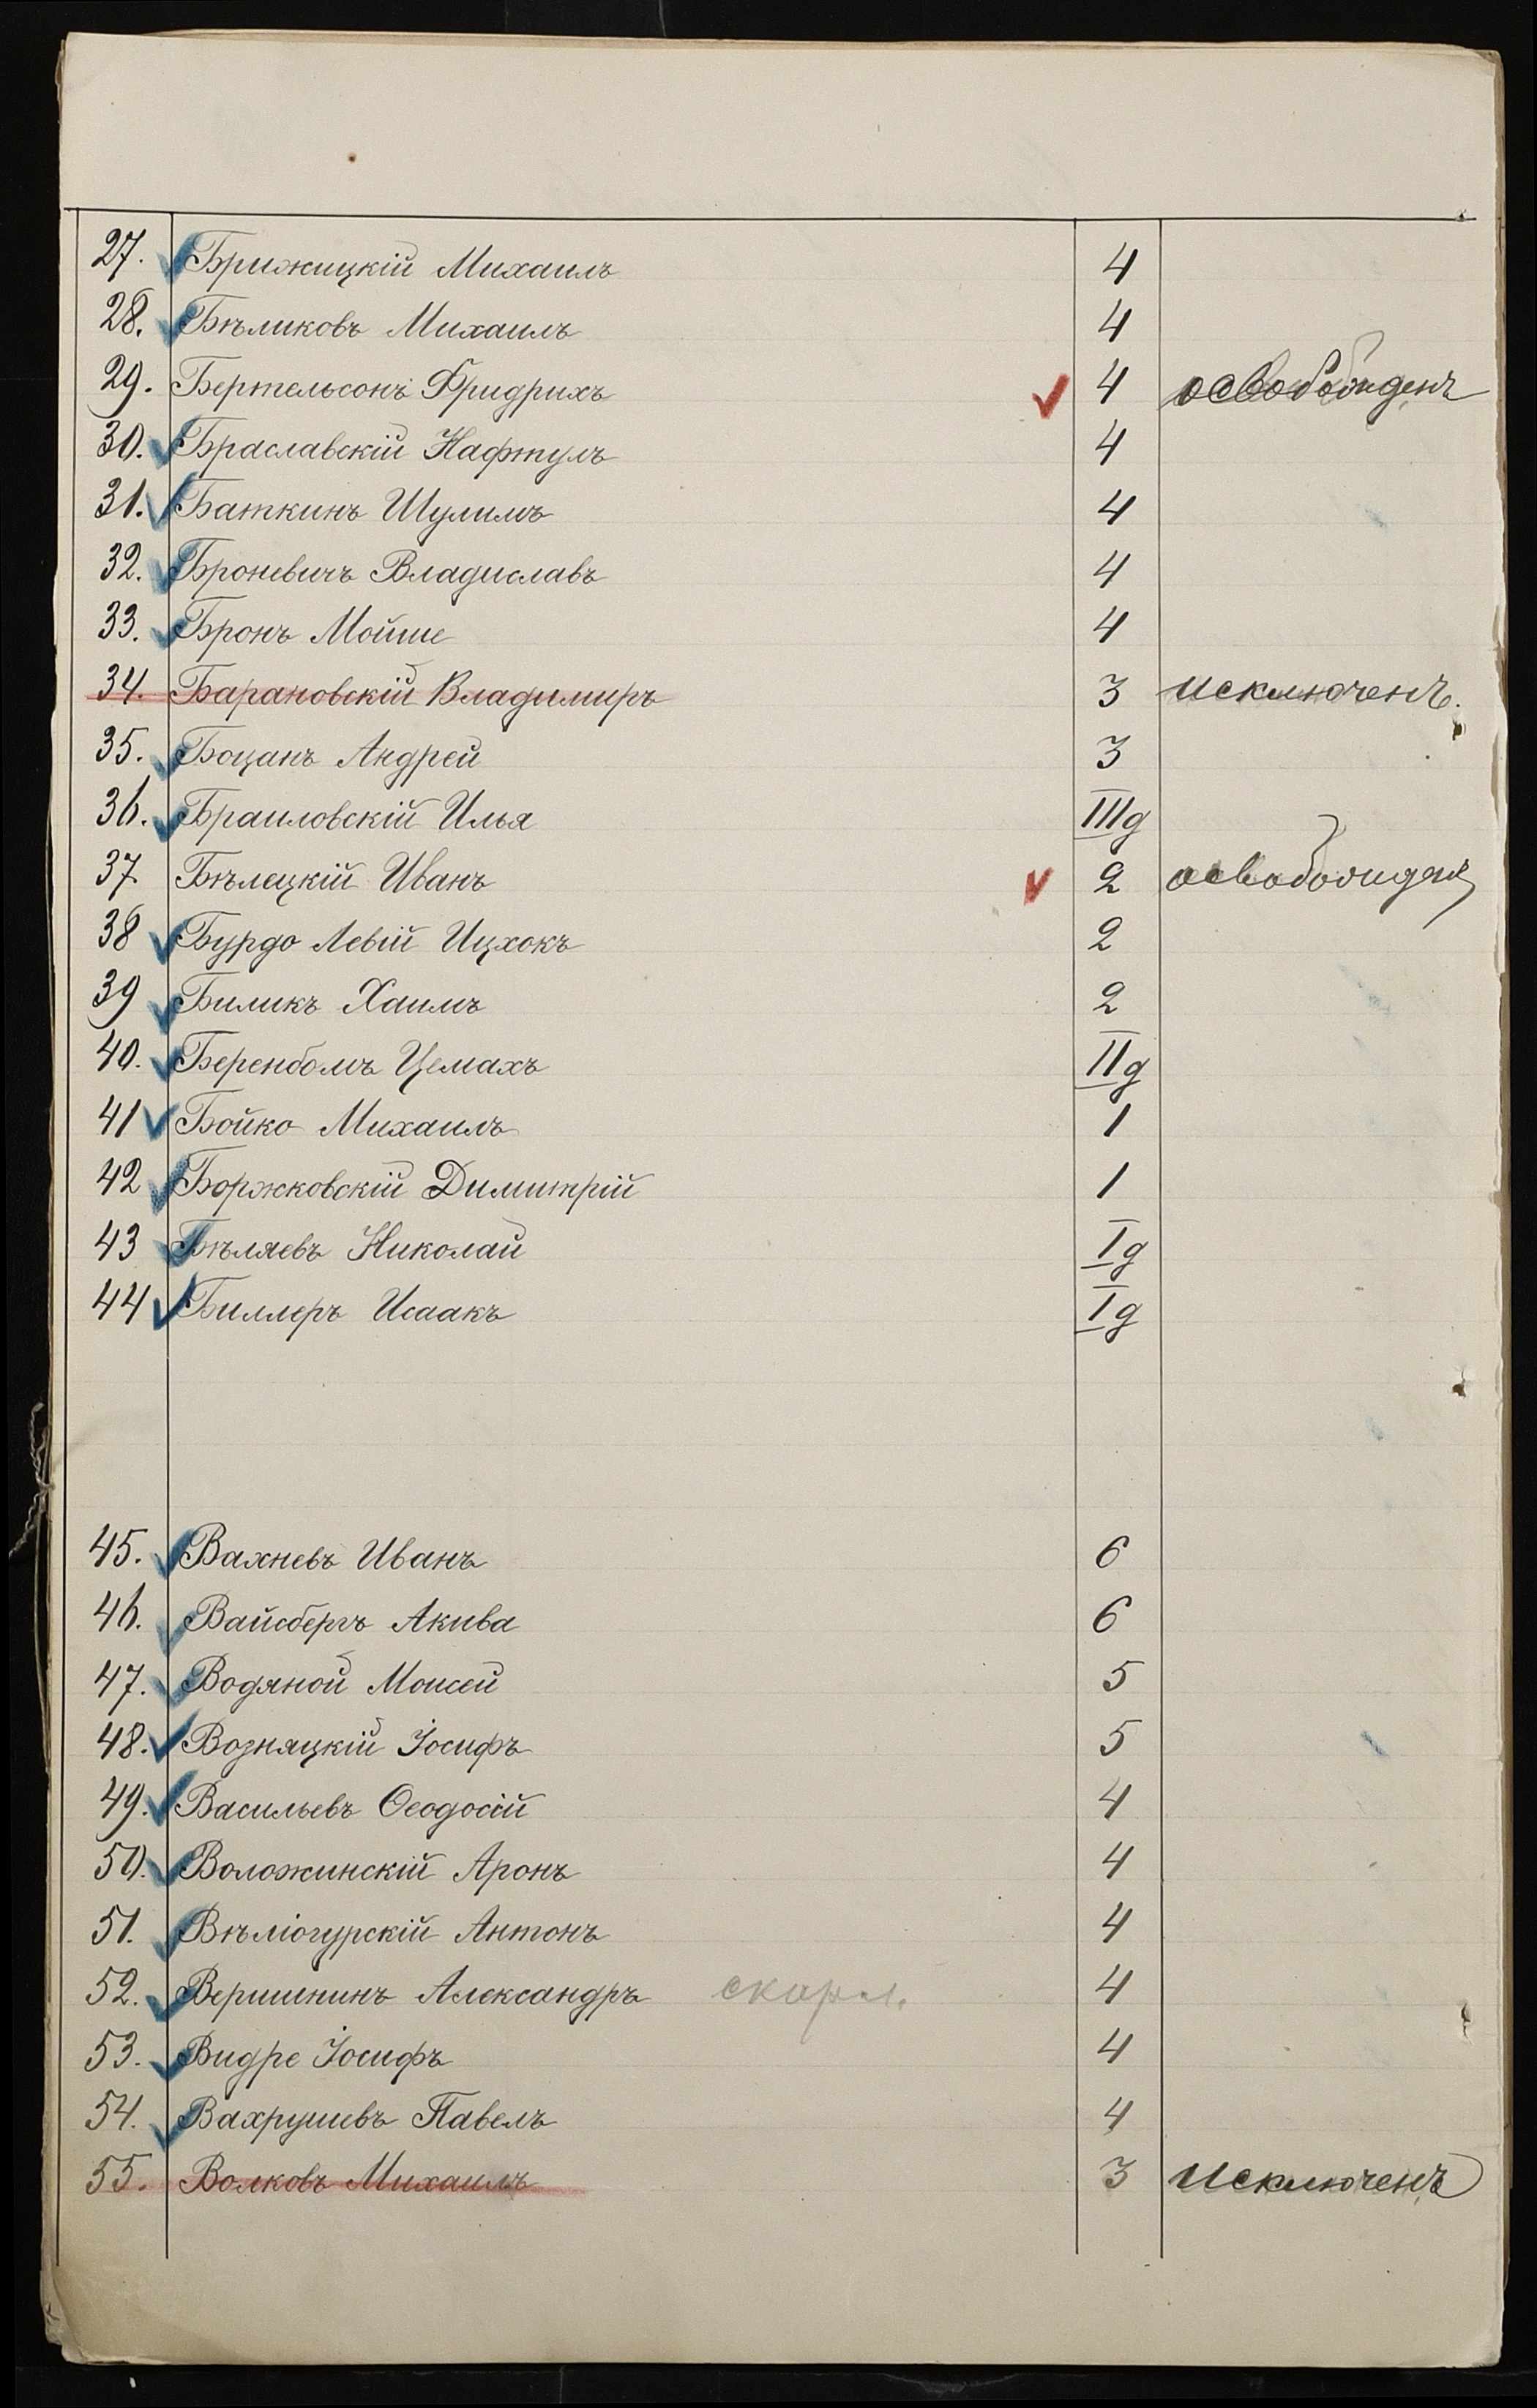 27. Брижицкій Михаилъ 4
28. Бѣликовъ Михаилъ 4
29. Бертельсонъ Фридрихъ 4 освобожденъ
30. Браславскій Нафтулъ 4
31. Баткинъ Шулимъ 4
32. Броневичъ Владиславъ 4
33. Бронъ Мойше 4
34. Барановскій Владимиръ 3 исключенъ.
35. Боцанъ Андрей 3
36. Браиловскій Илья IIIд
37. Бѣлецкій Иванъ 2 освобожденъ
38 Бурдо Левій Ицхокъ 2
39 Биликъ Хаимъ 2
40. Беренбомъ Цемахъ IIд
41 Бойко Михаилъ 1
42 Боржковскій Димитрій 1
43 Бѣляевъ Николай Iд
44 Биллеръ Исаакъ Iд
45. Вахневъ Иванъ 6
46. Вайсбергъ Акива 6
47. Водяной Моисей 5
48. Возняцкій Іосифъ 5
49. Васильевъ Ѳеодосій 4
50. Воложинскій Аронъ 4
51. Вѣліогурскій Антонъ 4
52. Вершининъ Александръ 4
53. Видре Іосифъ 4
54. Вахрушевъ Павелъ 4
55. Волковъ Михаилъ 3 исключенъ